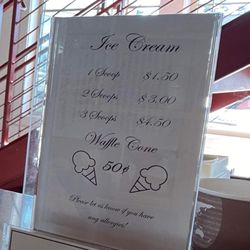 Ice Cream
1 Scoop $1.50
2 Scoops $3.00
3 Scoops $4.50
Waffle Cone
50¢
Please let us know if you have
any allergies!